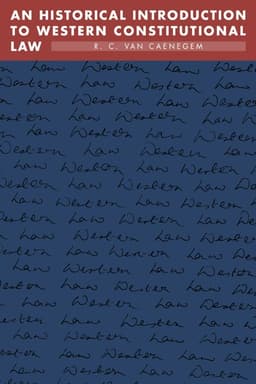 AN HISTORICAL INTRODUCTION
TO WESTERN CONSTITUTIONAL
LAW
R. C. VAN CAENEGEM
Law Western Law Western
Western Law Western Law
Law Western Law Western
Western Law Western Law
Western Law Western
Western Law Western Law
Law Western Law Western
Western Law Western Law
Law Western Law Western
Western Law Western Law
Western Law Western
Western Law Western Law
Law Western Law Western
Law Western Law Western
Law Western Law Western
Western Law Western
Western Law Western Law
Law Western Law
Western Law Western Law